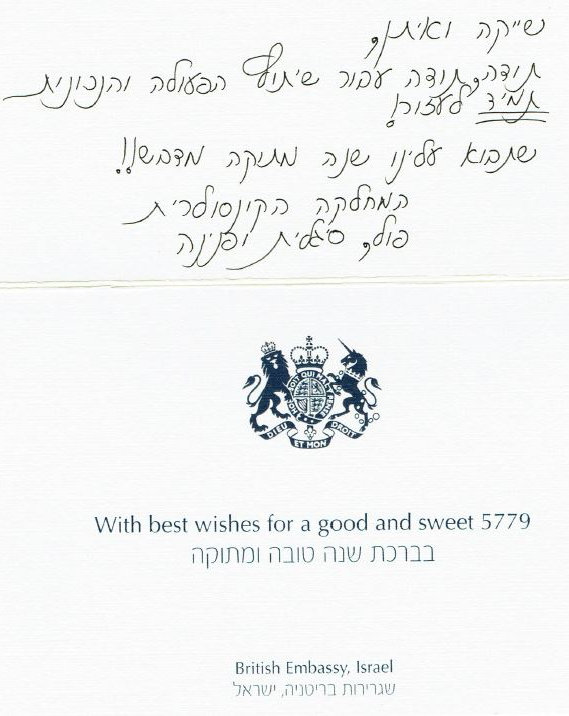 שייקה ואיתן,
תודה, תודה עבור שיתוף הפעולה והנכונות
תמיד לעזור!
שתבוא עלינו שנה מתוקה מדבש!!
המחלקה הקונסולרית
פול, סיגלית ופנינה
HONI SOIT QUI MAL Y PENSE
DIEU ET MON DROIT
With best wishes for a good and sweet 5779
בברכת שנה טובה ומתוקה
British Embassy, Israel
שגרירות בריטניה, ישראל